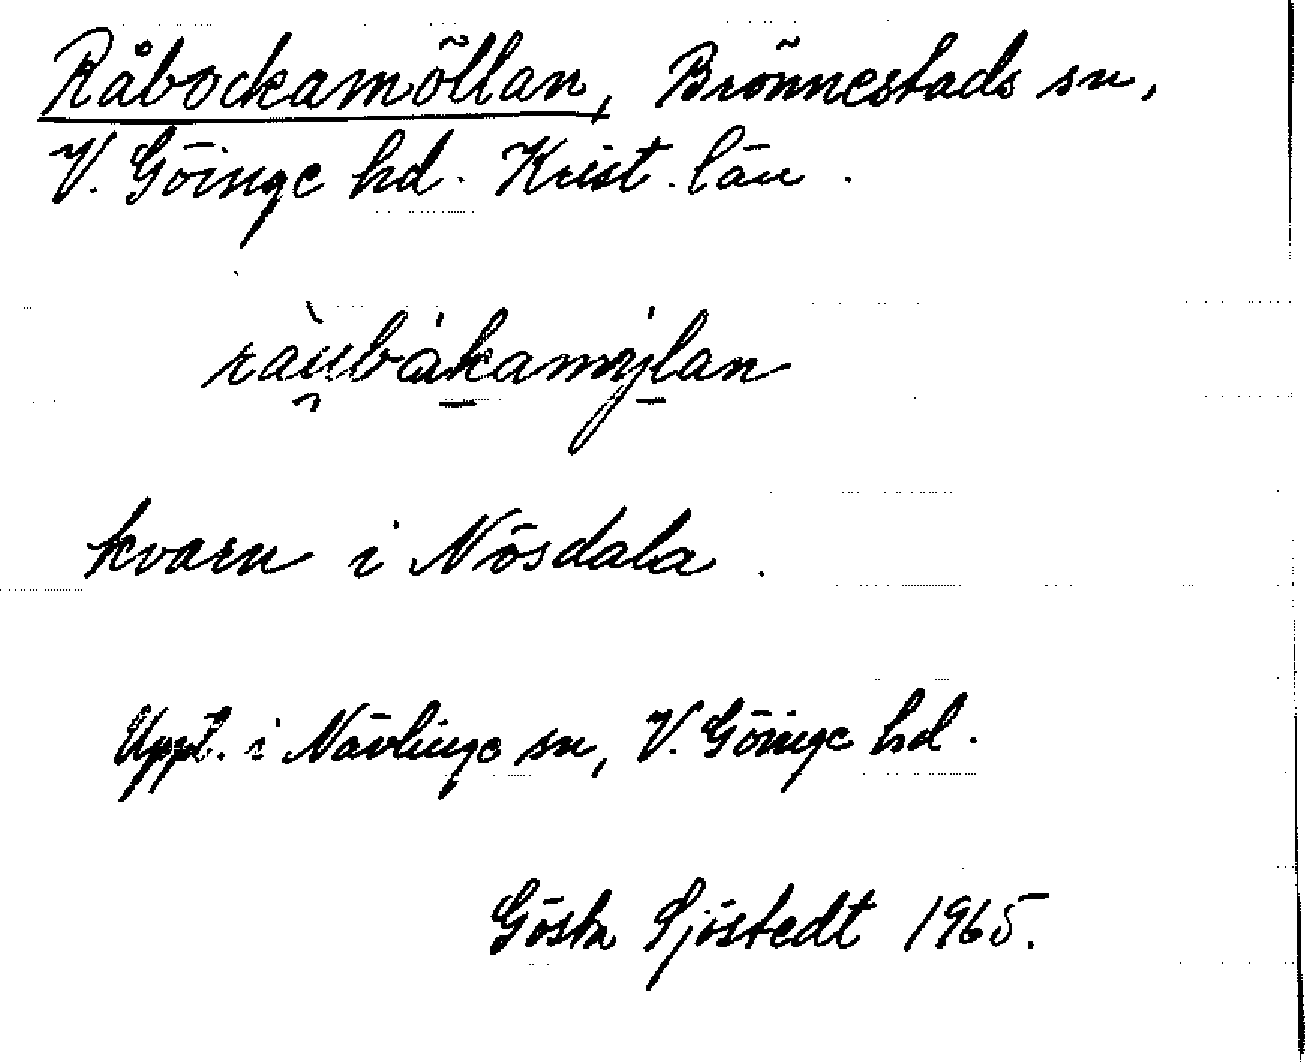 Råbockamöllan, Brönnestads sn,
V. Göinge hd. Krist. län.
ràubåkamylan
kvarn i Nösdala.
Uppt. i Nävlinge sn, V. Göinge hd.
Gösta Sjöstedt 1965.